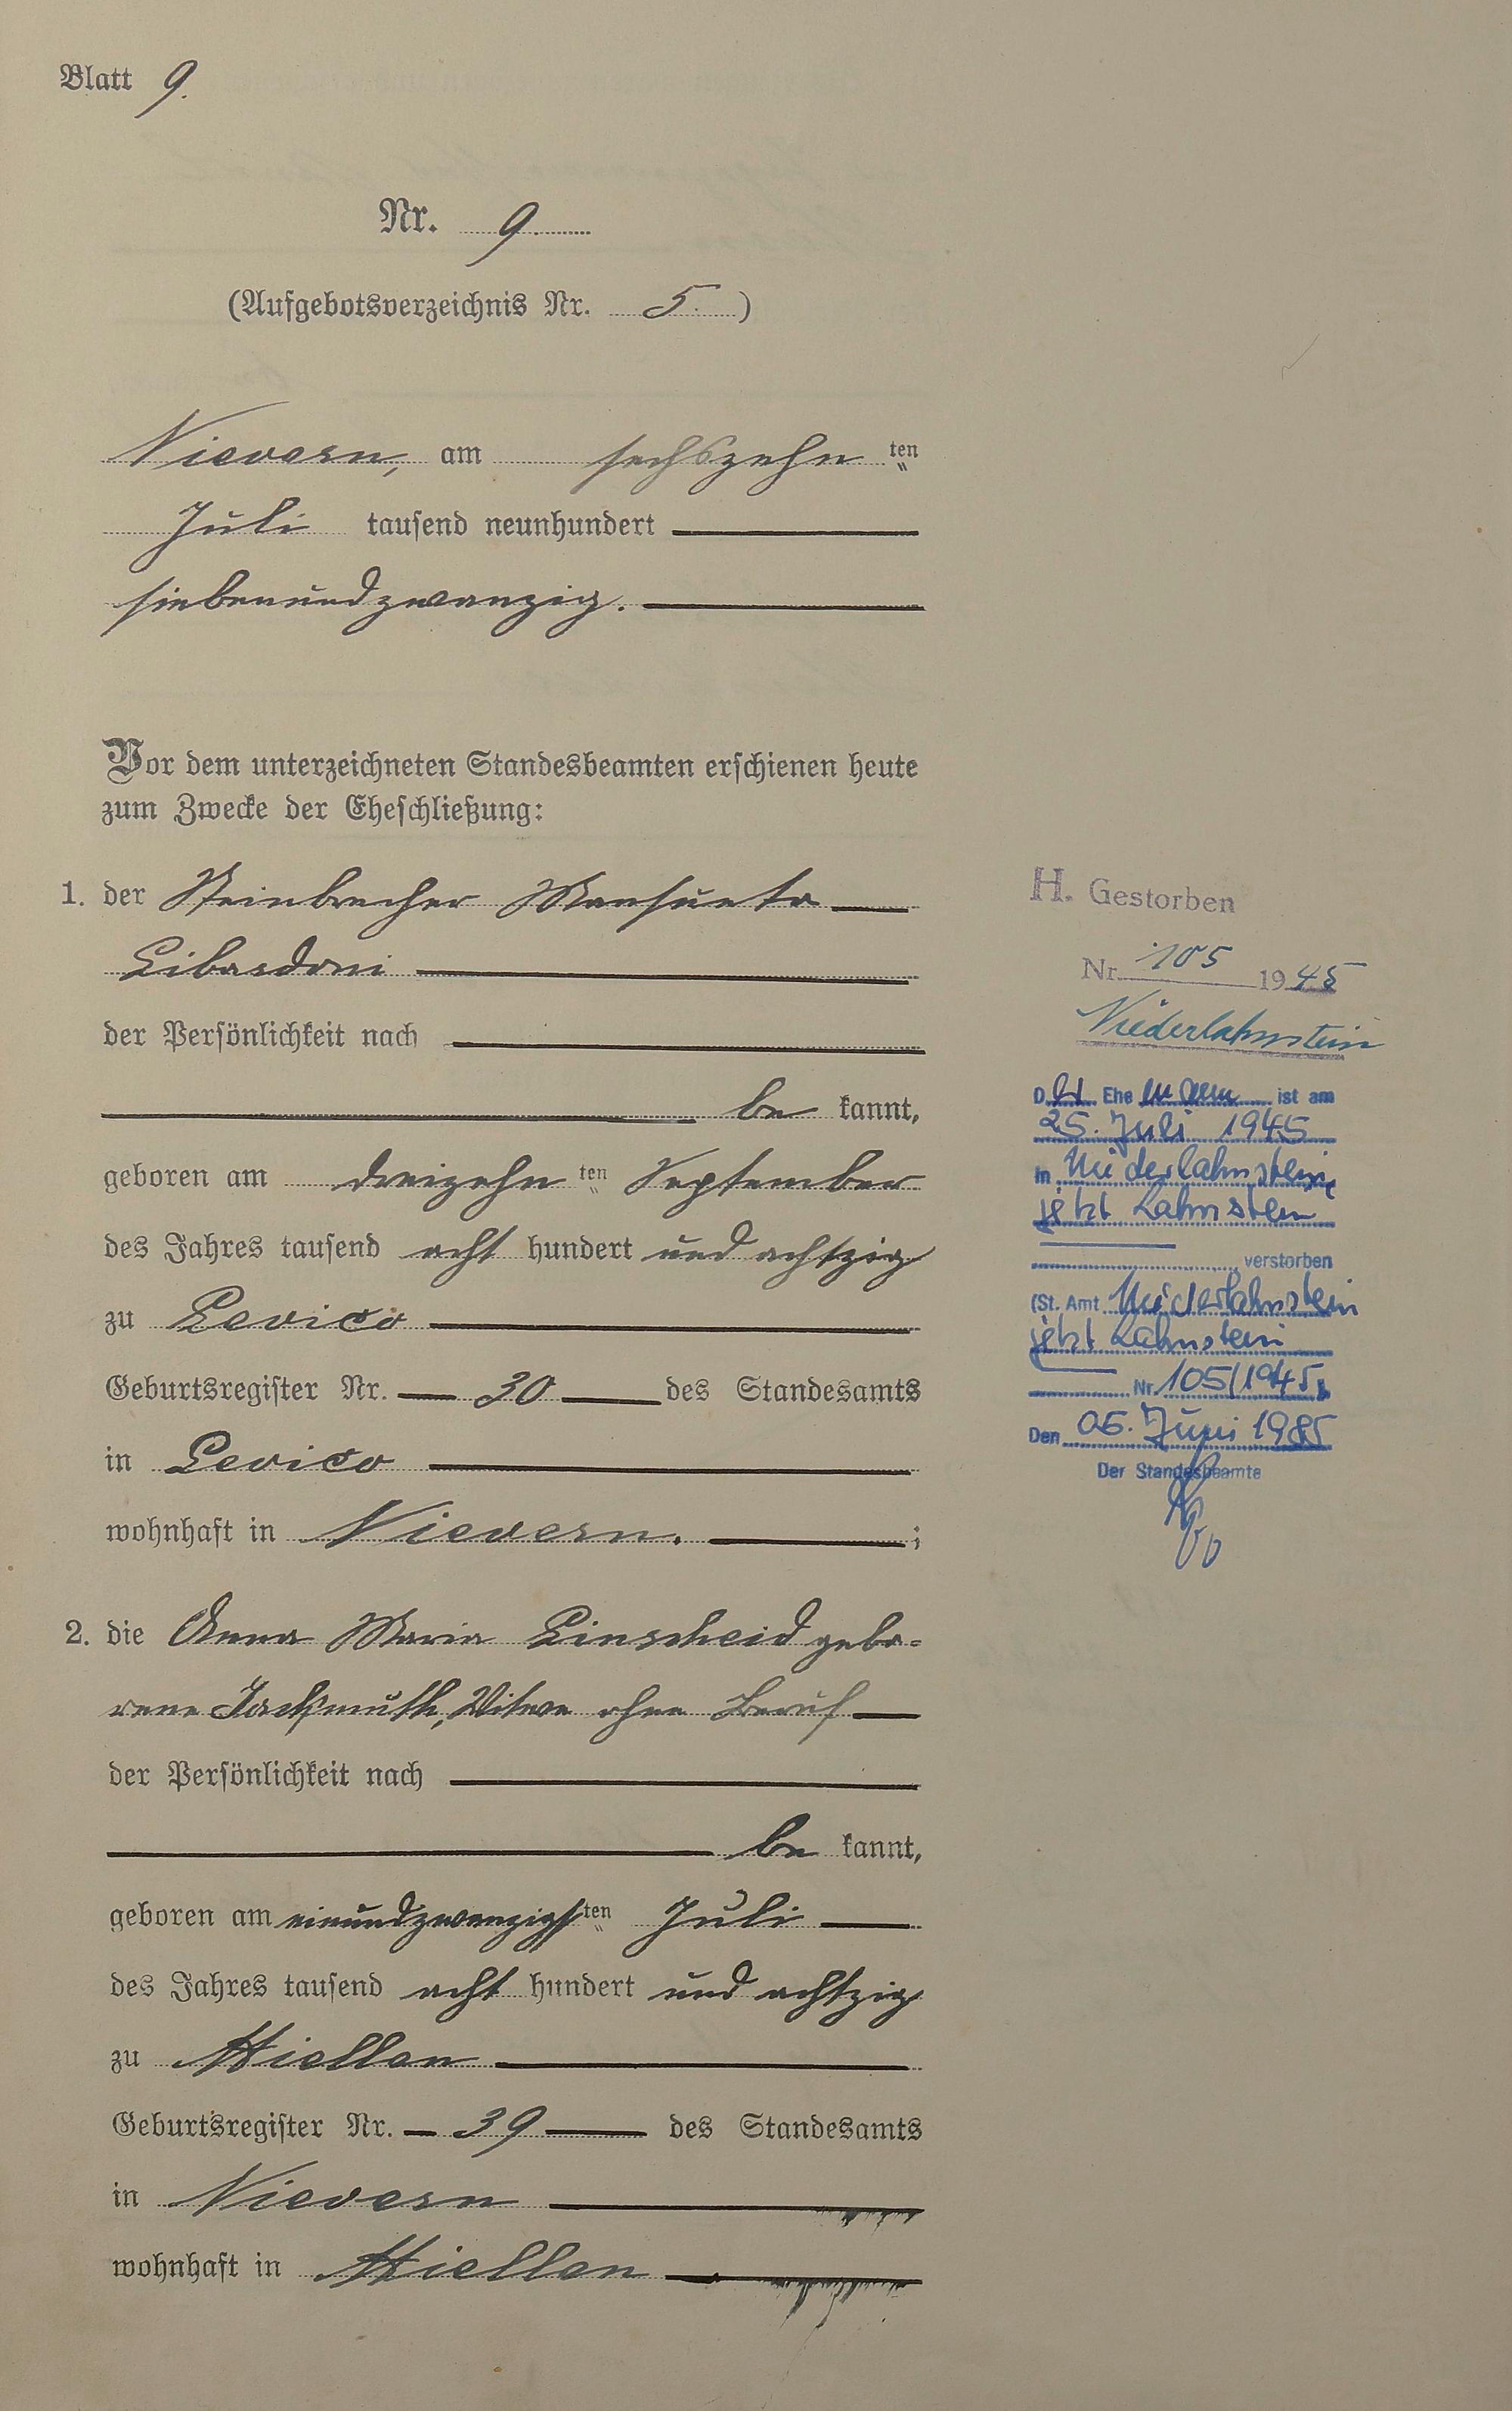 Blatt 9.
Nr. 9.
(Aufgebotsverzeichnis Nr. 5.)
Nievern, am sechszehn ten
Juli tausend neunhundert
siebenundzwanzig.
Vor dem unterzeichneten Standesbeamten erschienen heute
zum Zwecke der Eheschließung:
1. der Steinbrecher Mansueto
Libardoni
der Persönlichkeit nach
be kannt,
geboren am dreizehn ten September
des Jahres tausend acht hundert und achtzig
zu Levico
Geburtsregister Nr. 30 des Standesamts
in Levico
wohnhaft in Nievern. ;
2. die Anna Maria Linscheid gebo-
rene Witwe ohne Beruf
der Persönlichkeit nach
be kannt,
geboren am einundzwanzigsten Juli
des Jahres tausend acht hundert und achtzig
zu Miellen
Geburtsregister Nr. 39 des Standesamts
in Nievern
wohnhaft in Miellen
H. Gestorben
Nr. 105 1945
Niederlahnstein
Der Ehemann ist am
25. Juli 1945
in Niederlahnstein,
jetzt Lahnstein
verstorben
(St. Amt Niederlahnstein
jetzt Lahnstein
Nr. 105/1945)
Den 05. Juni 1985
Der Standesbeamte